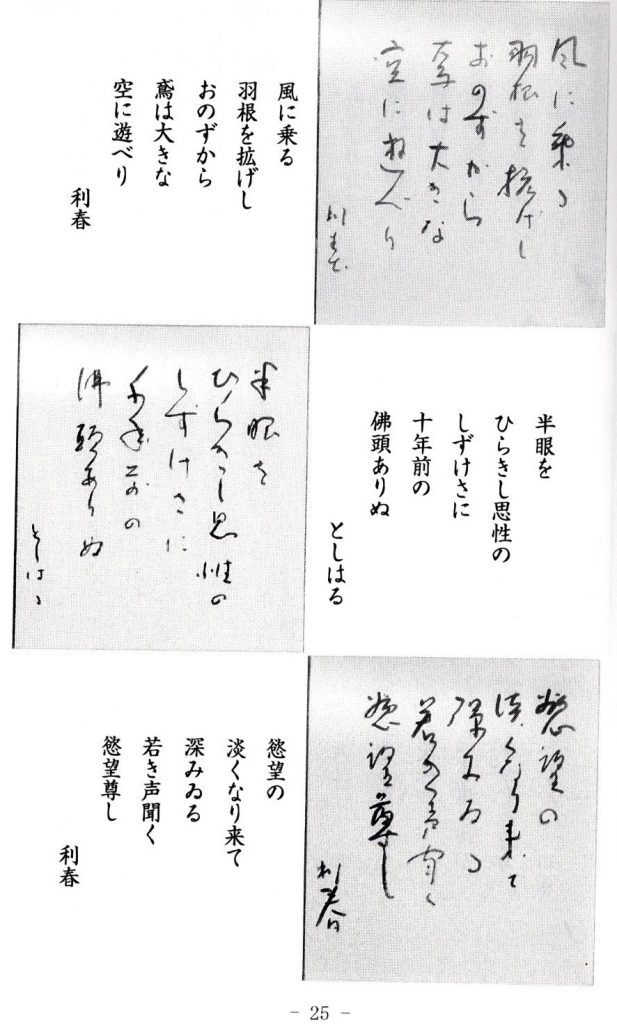 風に乗る
羽根を拡げし
おのずから
鳶は大きな
空に遊べり
利春
風に乗る
羽根を拡げし
おのずから
鳶は大きな
空に遊べり
利春
半眼を
ひらきし思性の
しずけさに
十年前の
佛頭ありぬ
としはる
半眼を
ひらきし思性の
しずけさに
千年前の
佛頭ありぬ
としはる
慾望の
淡くなり来て
深みゐる
若き声聞く
慾望尊し
利春
慾望の
淡くなり来て
深みゐる
若き声聞く
慾望尊し
利春
- 25 -